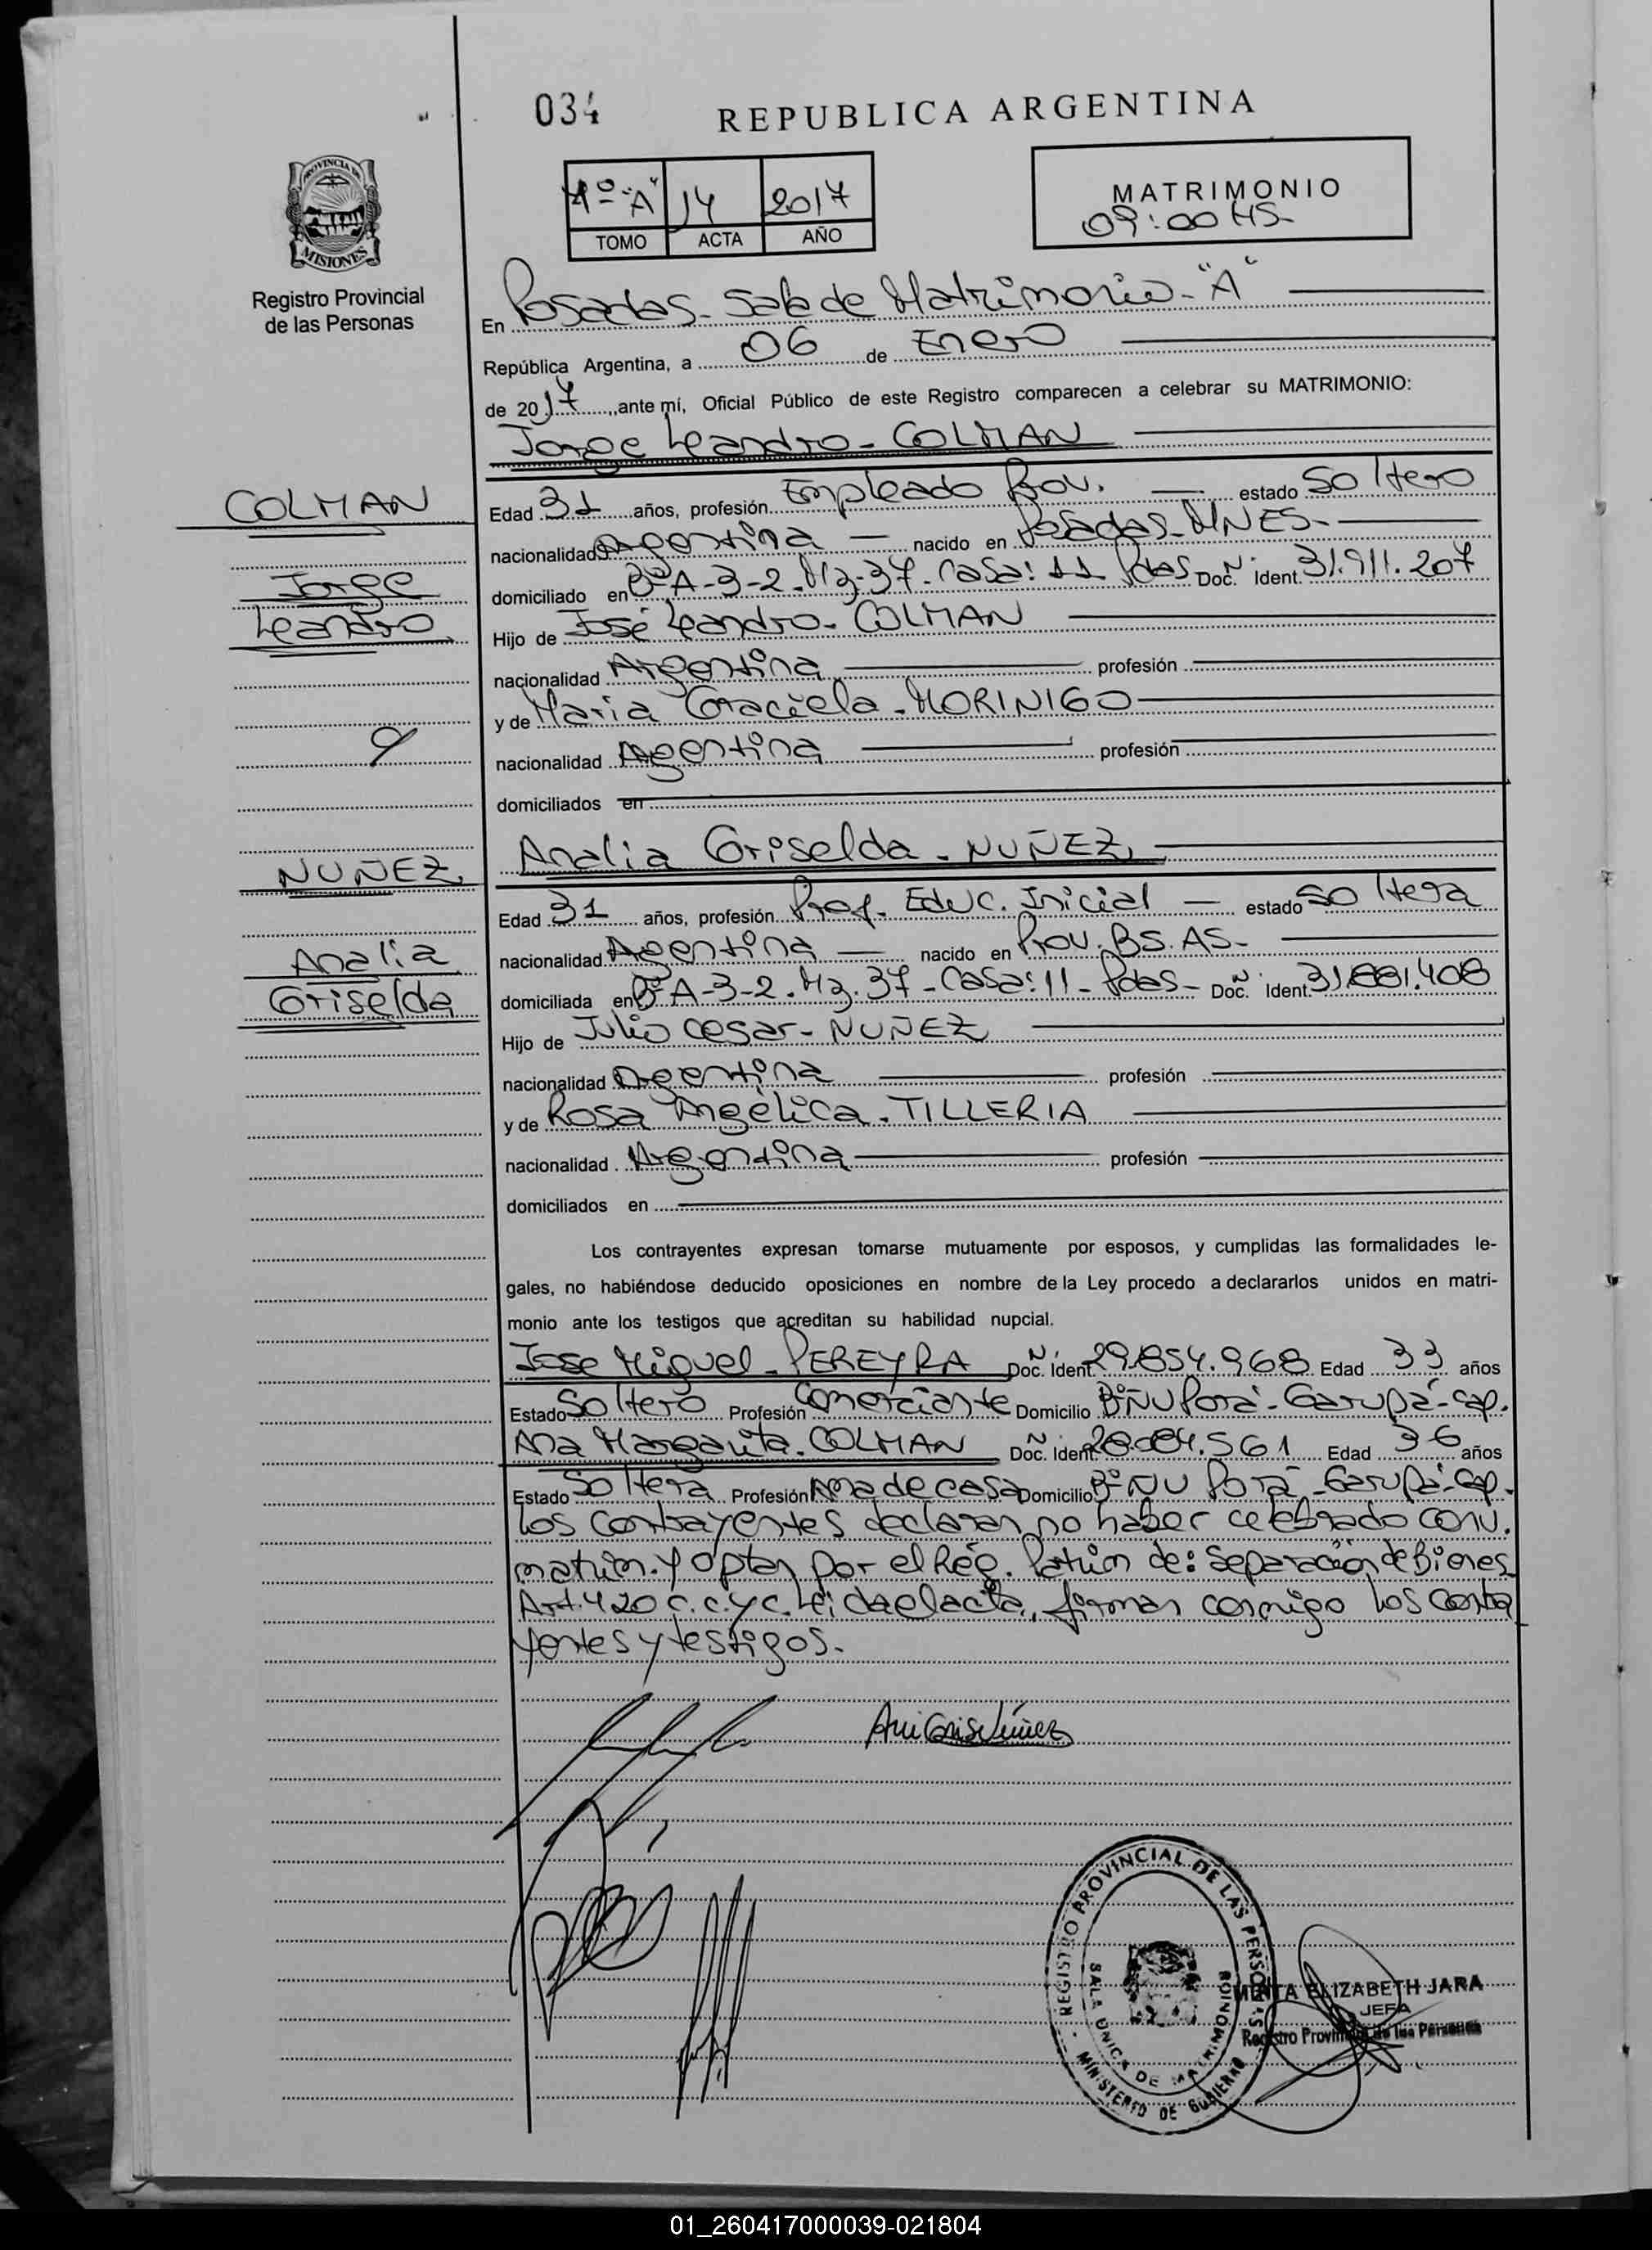 034
REPUBLICA ARGENTINA
PROVINCIA DE
MISIONES
Registro Provincial
de las Personas
"A" 14 2017
TOMO ACTA AÑO
MATRIMONIO
09:00 HS-
En Posadas- Sala de Matrimonio-"A"
República Argentina, a 06 de Enero
de 2017, ante mí, Oficial Público de este Registro comparecen a celebrar su MATRIMONIO:
Jorge Leandro- COLMAN
COLMAN
Jorge
Leandro
Edad 31 años, profesión Empleado Prov. estado Soltero
nacionalidad Argentina nacido en Posadas-MNES-
domiciliado en Bº A-3-2-Mz-37-Casa: 11 Pdas Doc. N Ident. 31.911.207
Hijo de José Leandro- COLMAN
nacionalidad Argentina profesión
y de Maria Graciela-MORINIGO
nacionalidad Argentina profesión
domiciliados en
Analia Griselda-NUÑEZ
NUÑEZ
Analia
Griselda
Edad 31 años, profesión Prof. Educ. Inicial estado Soltera
nacionalidad Argentina nacido en Prov. BS. AS-
domiciliada en Bº A-3-2. Mz. 37-Casa: 11-Pdas- Doc. N Ident. 31.881.408
Hijo de Julio Cesar- NUÑEZ
nacionalidad Argentina profesión
y de Rosa Angélica-TILLERIA
nacionalidad Argentina profesión
domiciliados en
Los contrayentes expresan tomarse mutuamente por esposos, y cumplidas las formalidades le-
gales, no habiéndose deducido oposiciones en nombre de la Ley procedo a declararlos unidos en matri-
monio ante los testigos que acreditan su habilidad nupcial.
Jose Miguel-PEREYRA Doc. N Ident. 29.854.968 Edad 33 años
Estado Soltero Profesión Comerciante Domicilio Bº ÑU Porá-Garupá-Cap.
Ana Margarita-COLMAN Doc. N Ident. 28.084.561 Edad 36 años
Estado Soltera Profesión Ama de casa Domicilio Bº ÑU Porá-Garupá-Cap.
Los contrayentes declaran no haber celebrado conv.
matrim. y optan por el Rég. Patrim de: Separación de Bienes
Art. 420 C.C. y C. Leida el acta, firman conmigo los contra
yentes y testigos-
REGISTRO PROVINCIAL DE LAS PERSONAS
SALA UNICA DE MATRIMONIOS
MINISTERIO DE GOBIERNO
ELIZABETH JARA
JEFA
Registro Provincial de las Personas
01_260417000039-021804